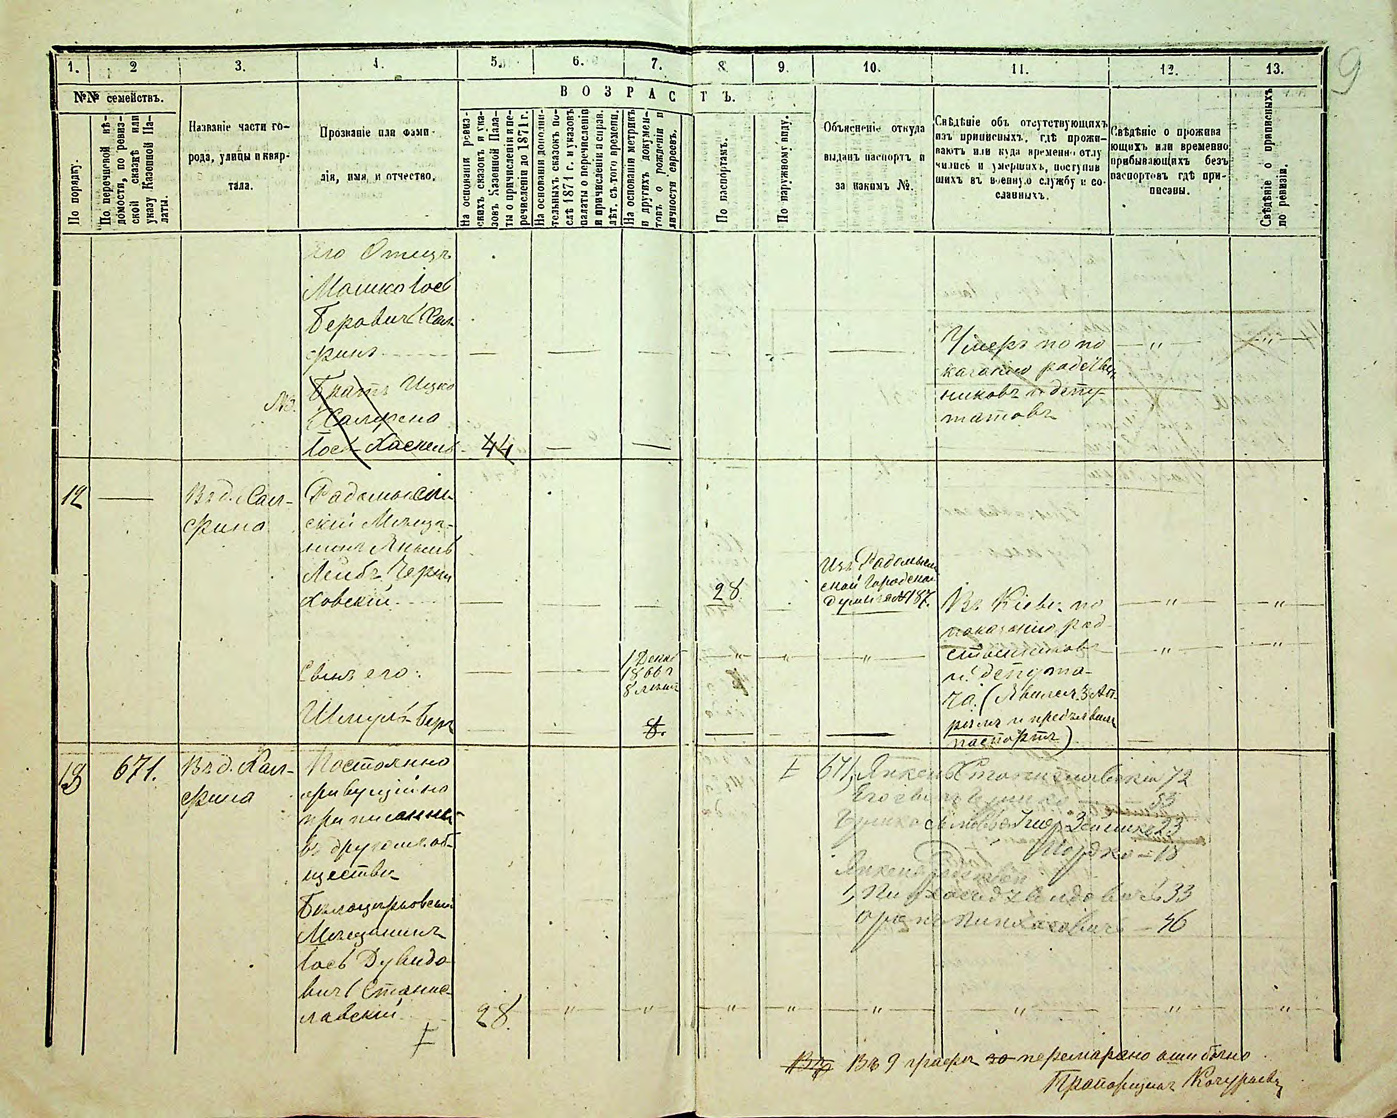 9
1. 2 3. 4. 5. 6. 7. 8. 9. 10. 11. 12. 13.
№№ семействъ.
По порядку.
По перечневой вѣ-
домости, по ревиз-
ской сказкѣ или
указу Казенной Па-
латы.
Названіе части го-
рода, улицы и квар-
тала.
Прозваніе или фами-
лія, имя и отчество.
ВОЗРАСТЪ.
На основаніи ревиз-
скихъ сказокъ и ука-
зовъ Казенной Пала-
ты о причисленіи и пе-
речисленіи до 1871 г.
На основаніи дополни-
тельныхъ сказокъ по-
слѣ 1871 г. и указовъ
палаты о перечисленіи
и причисленіи и справ.
лѣт. съ того времени.
На основаніи метрикъ
и другихъ докумен-
товъ о рожденіи и
личности евреевъ.
По паспортамъ.
По наружному виду.
Объясненіе откуда
выданъ паспортъ и
за какимъ №.
Свѣдѣніе объ отсутствующихъ
изъ приписныхъ, гдѣ прожи-
ваютъ или куда временно отлу-
чились и умершихъ, поступив-
шихъ въ военную службу и со-
сланныхъ.
Свѣдѣніе о прожива
ющихъ или временно
прибывающихъ безъ
паспортовъ гдѣ при-
писаны.
Свѣдѣніе о приписныхъ
по ревизіи.
Его Отецъ
Мошко Іось
Беровичъ Хал-
финъ — — — — — — „ — „
Умеръ по по
казанію
никовъ и депу-
татовъ
Братъ Ицко
Халфена
Іось-Хаскель 44 — —
12 — Въ д. Хал-
фина
Радомысль-
скій Мѣща-
нинъ Янкель
Лейбъ Черня
ховскій — — — 28
Изъ Радомысль
ской Городской
Думы за № 187.
Въ Кіевѣ по
показанію рад-
и депута-
та. (Явился 3 Ап
рѣля и предъявилъ
паспортъ)
Сынъ его:
Шмуль-Беръ
1 Декаб
1866 г
8 лѣтъ
8.
13 671. Въ д. Хал-
фина
Постоянно
приписанный
въ другомъ об-
ществѣ
Бѣлоцерковскій
Мѣщанинъ
Іось Дувидо-
вичъ Станис-
лавскій 28. „ „ „ „ „ „ „ „
671, Янкель Станиславскій 72
Его сынъ 53
23
Мордко — 18
1, Пинхось Дувидовичъ 33
Пинхасовичъ — 46
Въ 9 графѣ 30 перемарано ошибочно
Прапорщикъ